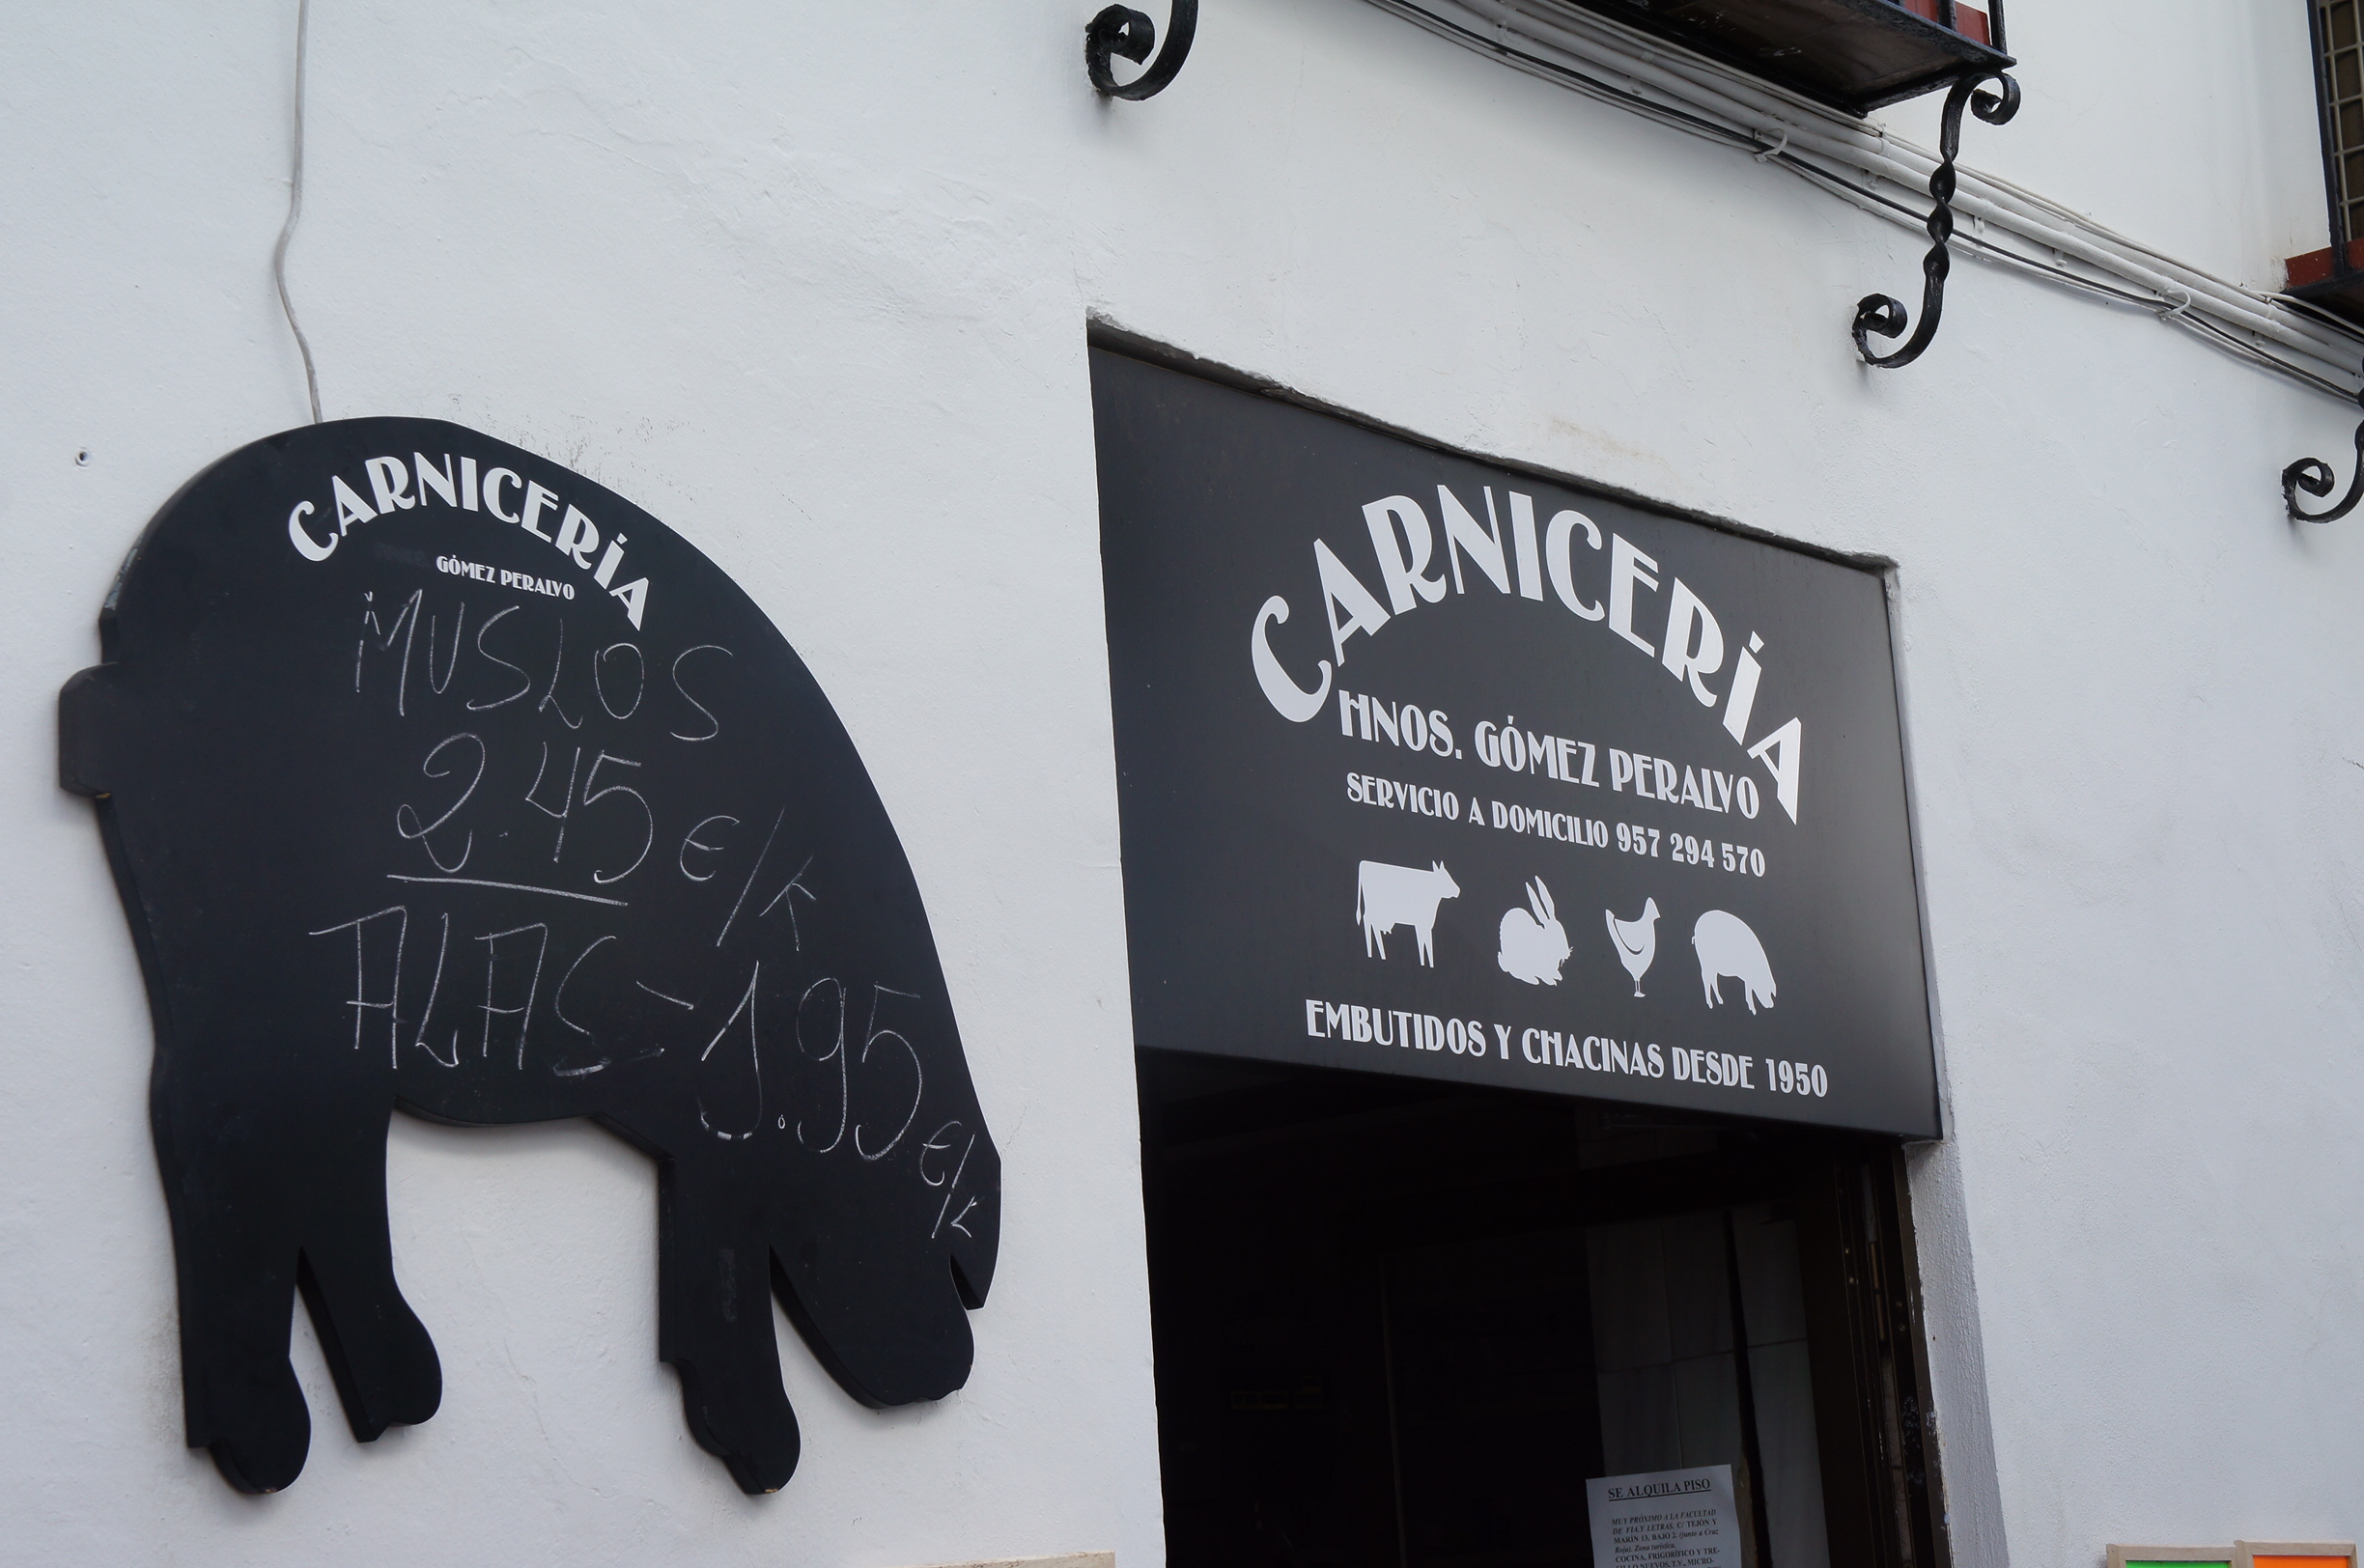 CARNICERÍA
GÓMEZ PERALVO
MUSLOS
2.45 €/K
ALAS - 1.95 €/K
CARNICERÍA
HNOS. GÓMEZ PERALVO
SERVICIO A DOMICILIO 957 294 570
EMBUTIDOS Y CHACINAS DESDE 1950
SE ALQUILA PISO
MUY PRÓXIMO A LA FACULTAD
DE FIA Y LETRAS. C/ TEJÓN Y
MARÍN 13, BAJO 2. (junto a Cruz
Roja). Zona turística.
COCINA, FRIGORÍFICO Y TRE-
NUEVOS, T.V., MICRO-